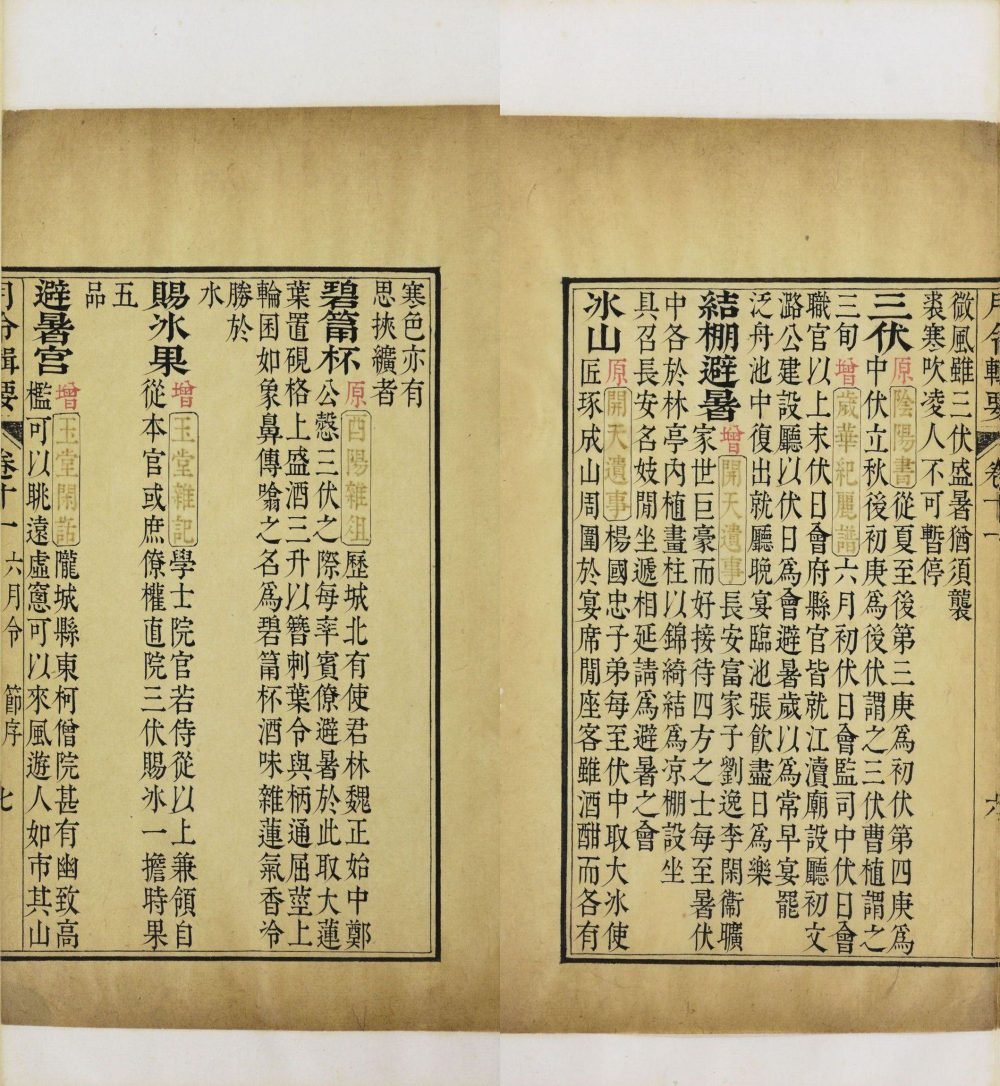 月令輯要 卷十一 六
微風雖三伏盛暑猶須襲
裘寒吹凌人不可暫停
三伏 原 陰陽書 從夏至後第三庚爲初伏第四庚爲
中伏立秋後初庚爲後伏謂之三伏曹植謂之
三旬 增 歲華紀麗譜 六月初伏日會監司中伏日會
職官以上末伏日會府縣官皆就江瀆廟設廳初文
潞公建設廳以伏日爲會避暑歲以爲常早宴罷
泛舟池中復出就廳晩宴臨池張飲盡日爲樂
結棚避暑 增 開天遺事 長安富家子劉逸李閑衞曠
家世巨豪而好接待四方之士每至暑伏
中各於林亭內植畫柱以錦綺結爲凉棚設坐
具召長安名妓閒坐遞相延請爲避暑之會
冰山 原 開天遺事 楊國忠子弟每至伏中取大冰使
匠琢成山周圍於宴席閒座客雖酒酣而各有
寒色亦有
思挾纊者
碧筩杯 原 酉陽雜俎 歷城北有使君林魏正始中鄭
公慤三伏之際每率賓僚避暑於此取大蓮
葉置硯格上盛酒三升以簪刺葉令與柄通屈莖上
輪囷如象鼻傳噏之名爲碧筩杯酒味雜蓮氣香冷
勝於
水
賜冰果 增 玉堂雜記 學士院官若侍從以上兼領自
從本官或庶僚權直院三伏賜冰一擔時果
五
品
避暑宮 增 玉堂閑話 隴城縣東柯僧院甚有幽致高
檻可以眺遠虛窻可以來風遊人如市其山
月令輯要 卷十一 六月令 節序 七